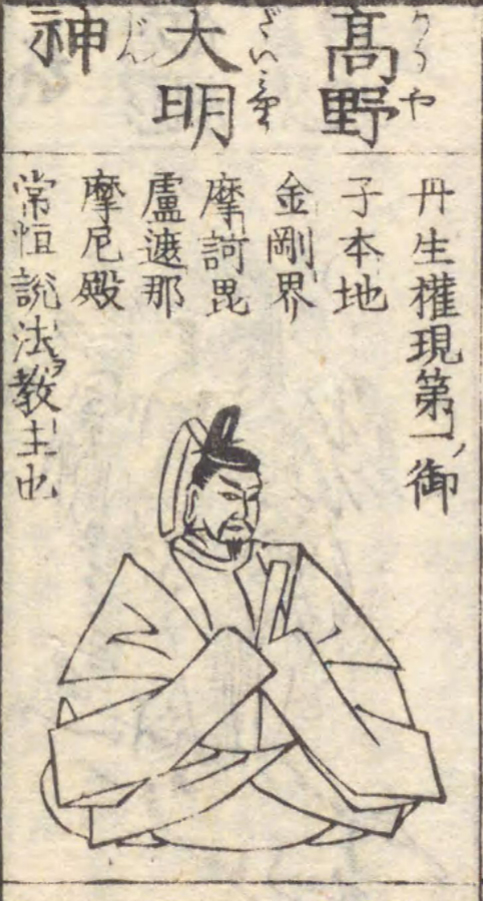 髙野
かうや
大明
だいみやう
神
じん
丹生權現第一ノ御
子本地
金剛界
摩訶毘
盧遮那
摩尼殿
常恒説法ヲ教主也